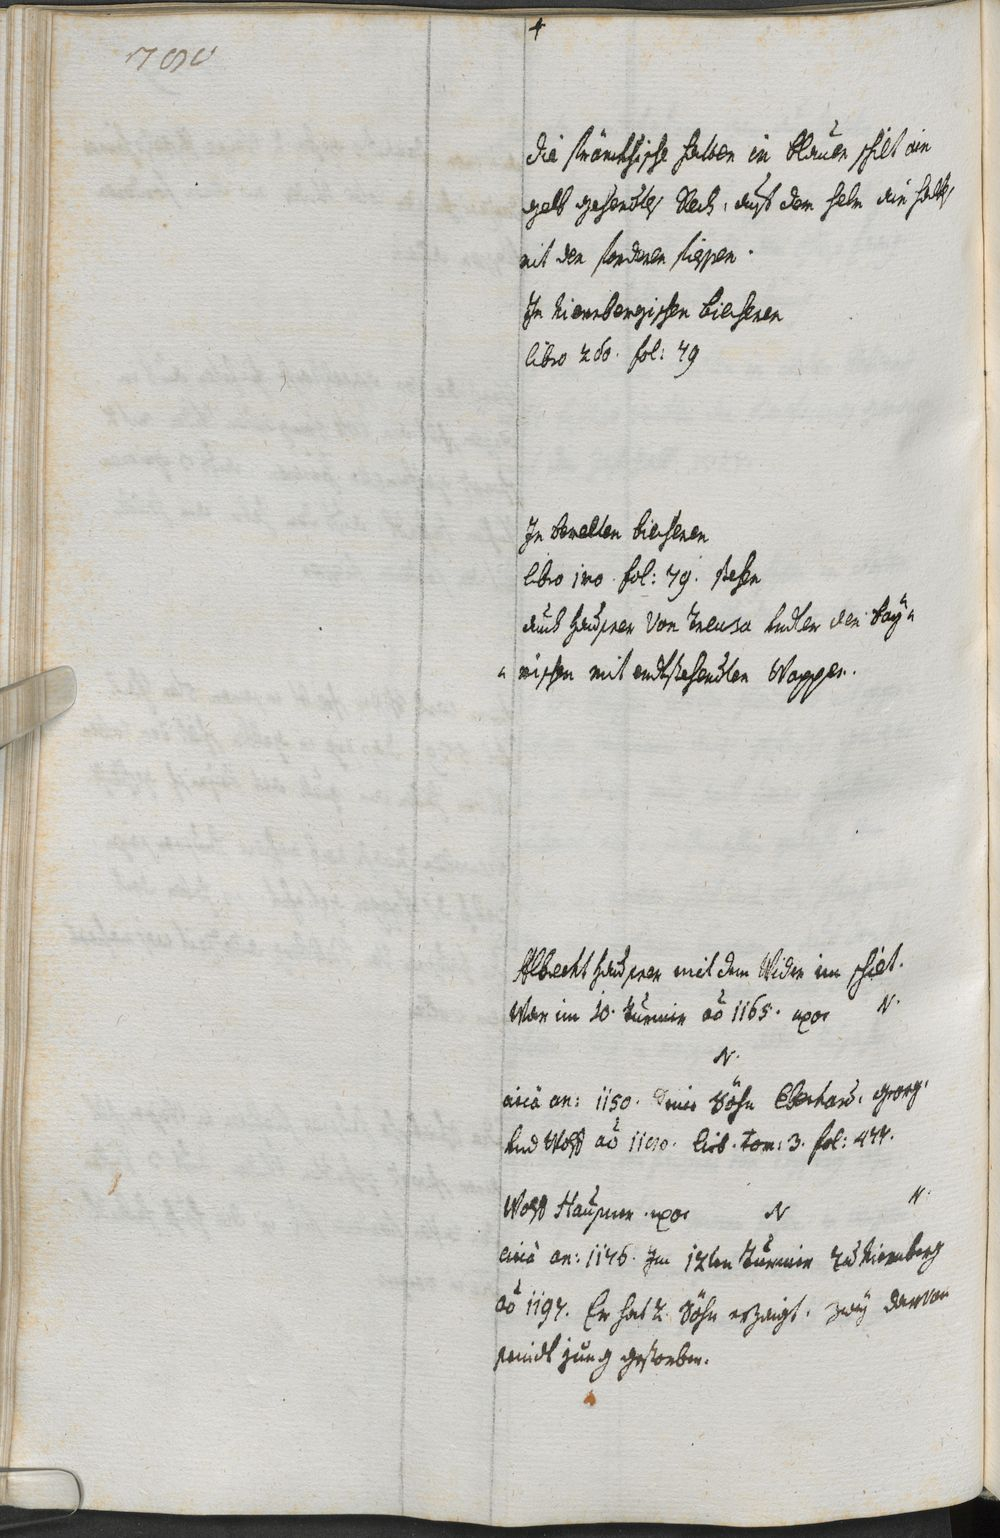 790
die fränckhische haben in blauen schilt ein
gelb gehendes Reh, auf dem helm ein halbs
mit den forderen fiessen.
In Niernbergischen biecheren
libro 2do. fol: 79
In bemelten biecheren
libro imo. fol: 79. stehen
auch Hausner von Treusa under den Bay-
-rischen mit endtstehendten Wappen.
Albrecht Hausner mit dem Wider im schilt.
War im 10. Turnier ao 1165. uxor N.
N.
circa an: 1150. Söhn Eberhard, Georg,
und Wolf ao 1190. lib. tom: 3. fol: 477.
Wolf Hausner uxor N N.
circa an: 1176. Im 12ten Turnier zu Niernberg
ao 1197. Er hat 7. Söhn erzeigt. zwey darvon
seindt jung gestorben.